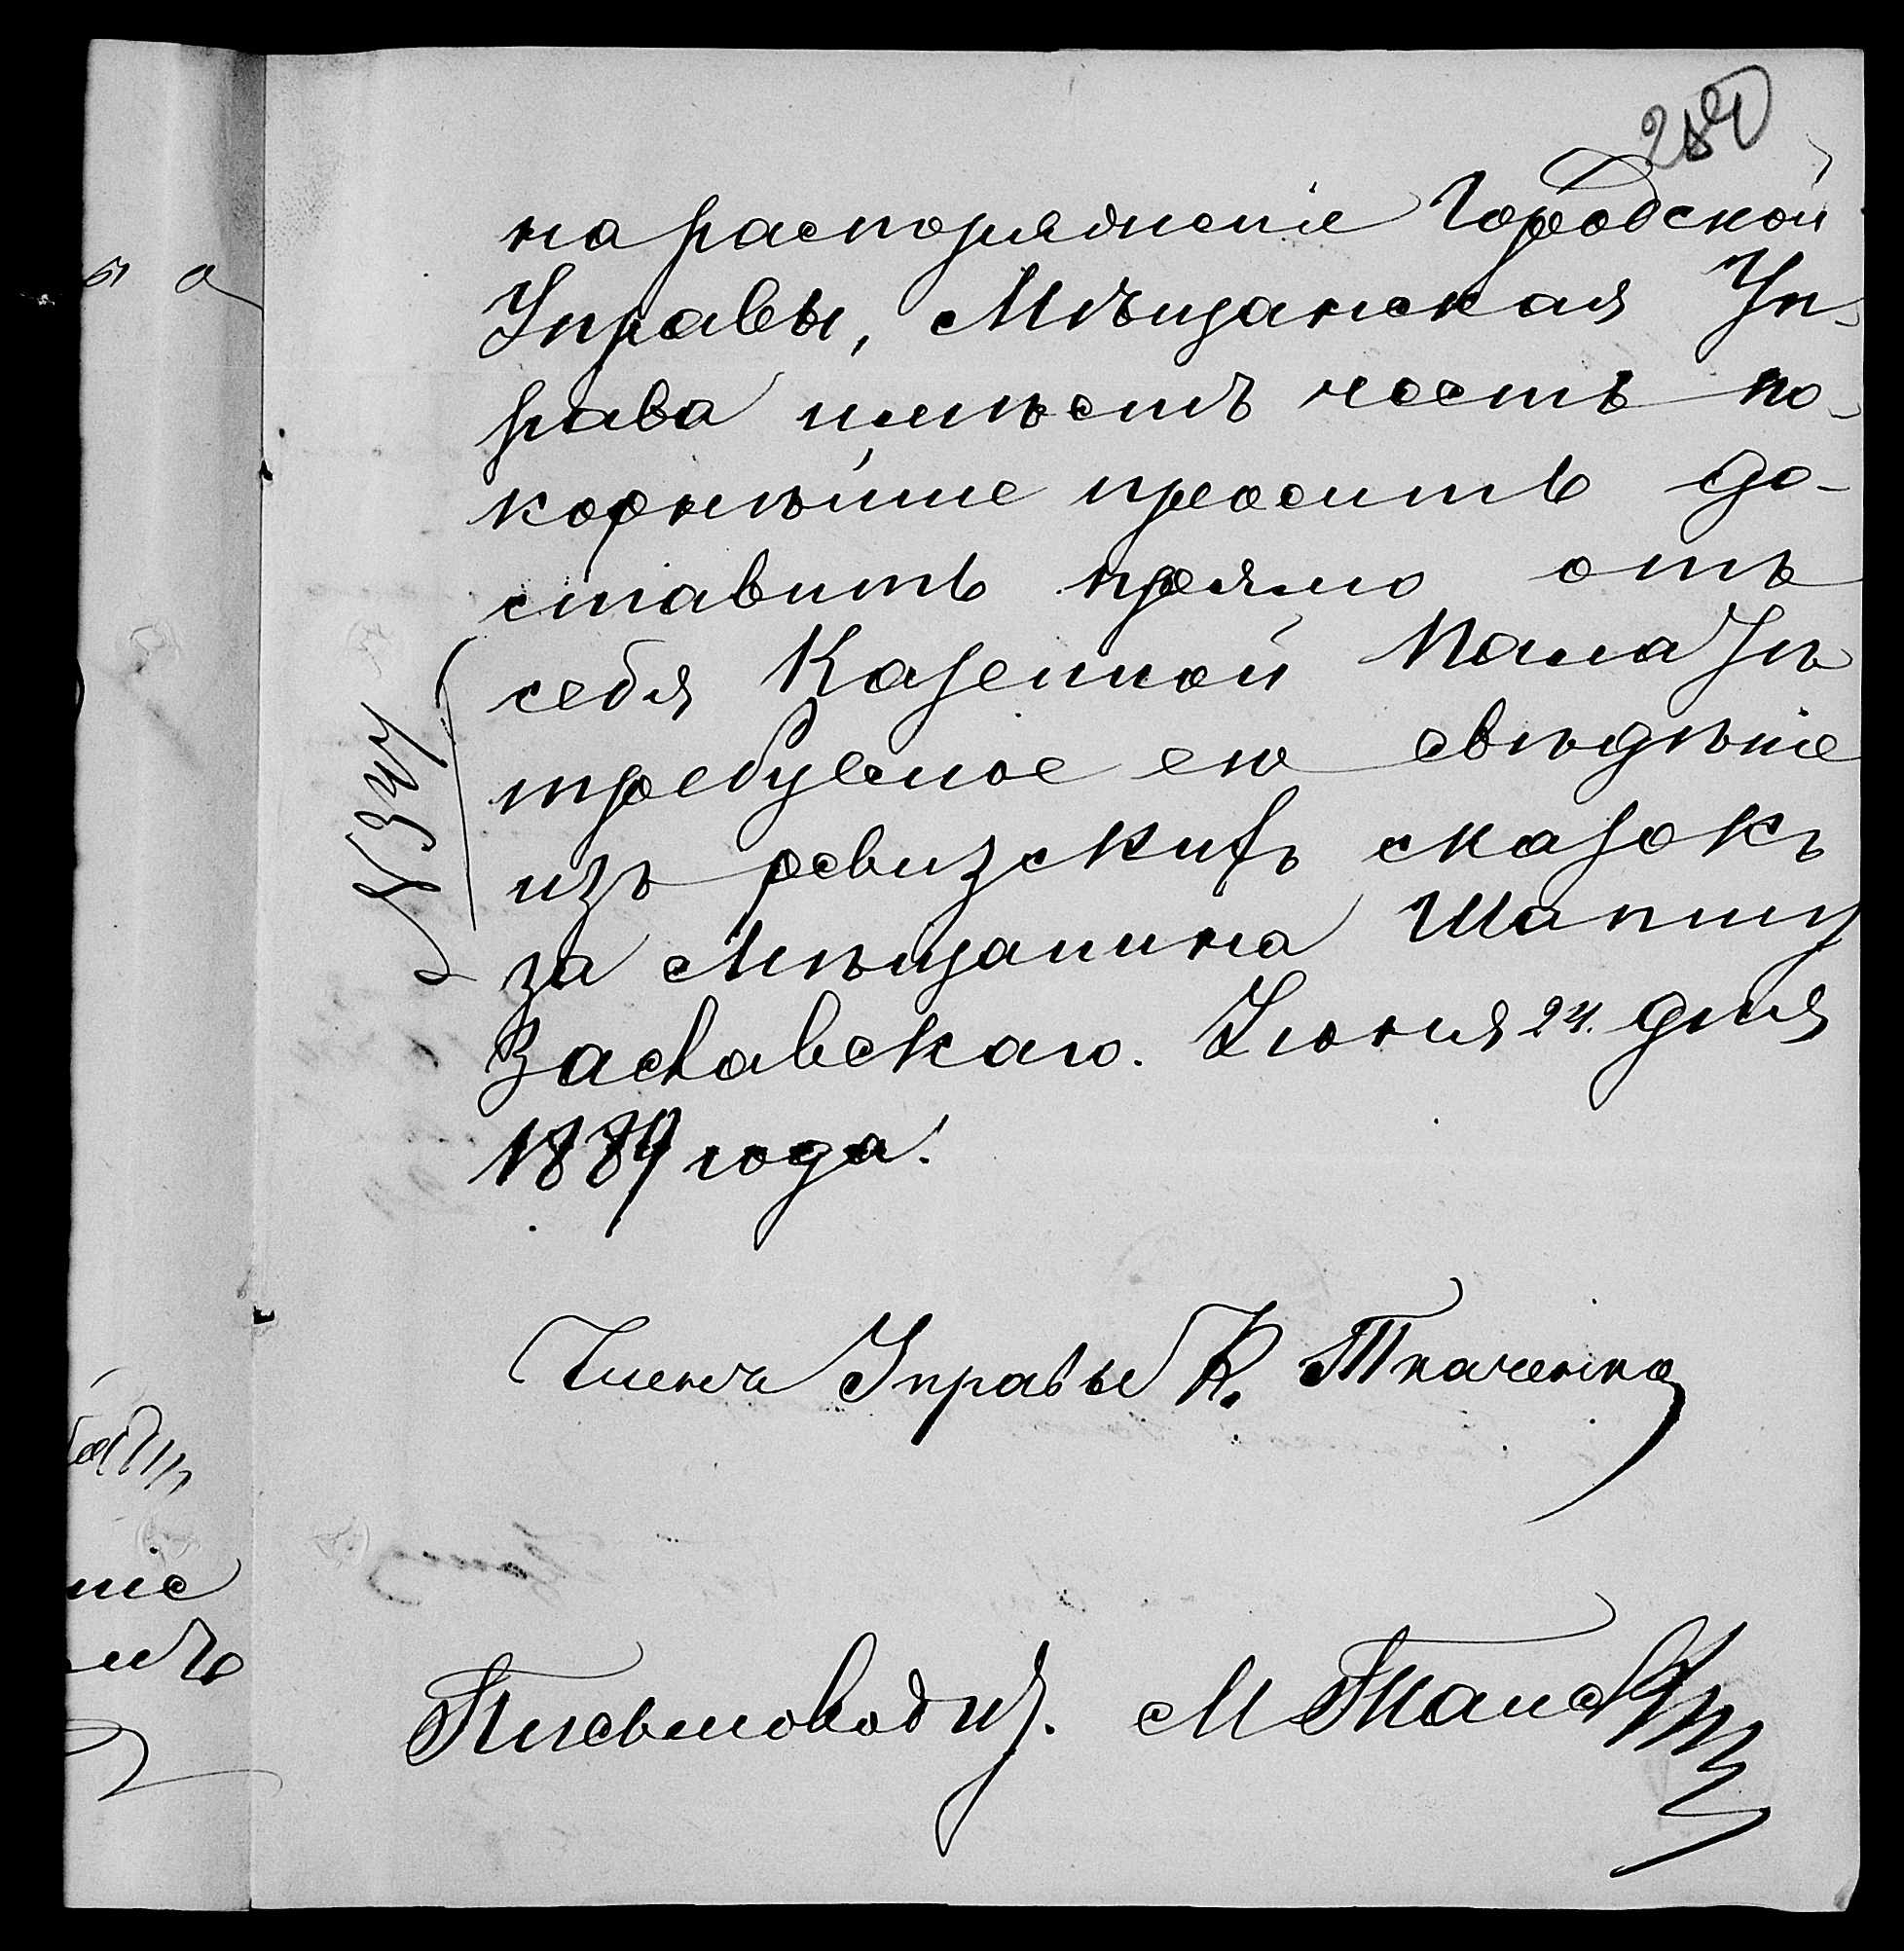 на распоряженіе Городской
Управы, Мѣщанская Уп-
рава имѣетъ честь по-
корнѣйше просить до-
ставить прямо отъ
себя Казенной Палатѣ
требуемое ею свѣдѣніе
изъ ревизскихъ сказокъ
за Мѣщанина Шапши
Заславскаго. Іюня 24. дня
1889 года.
Членъ Управы К. Ткаченко
Письмоводит. М
ніе